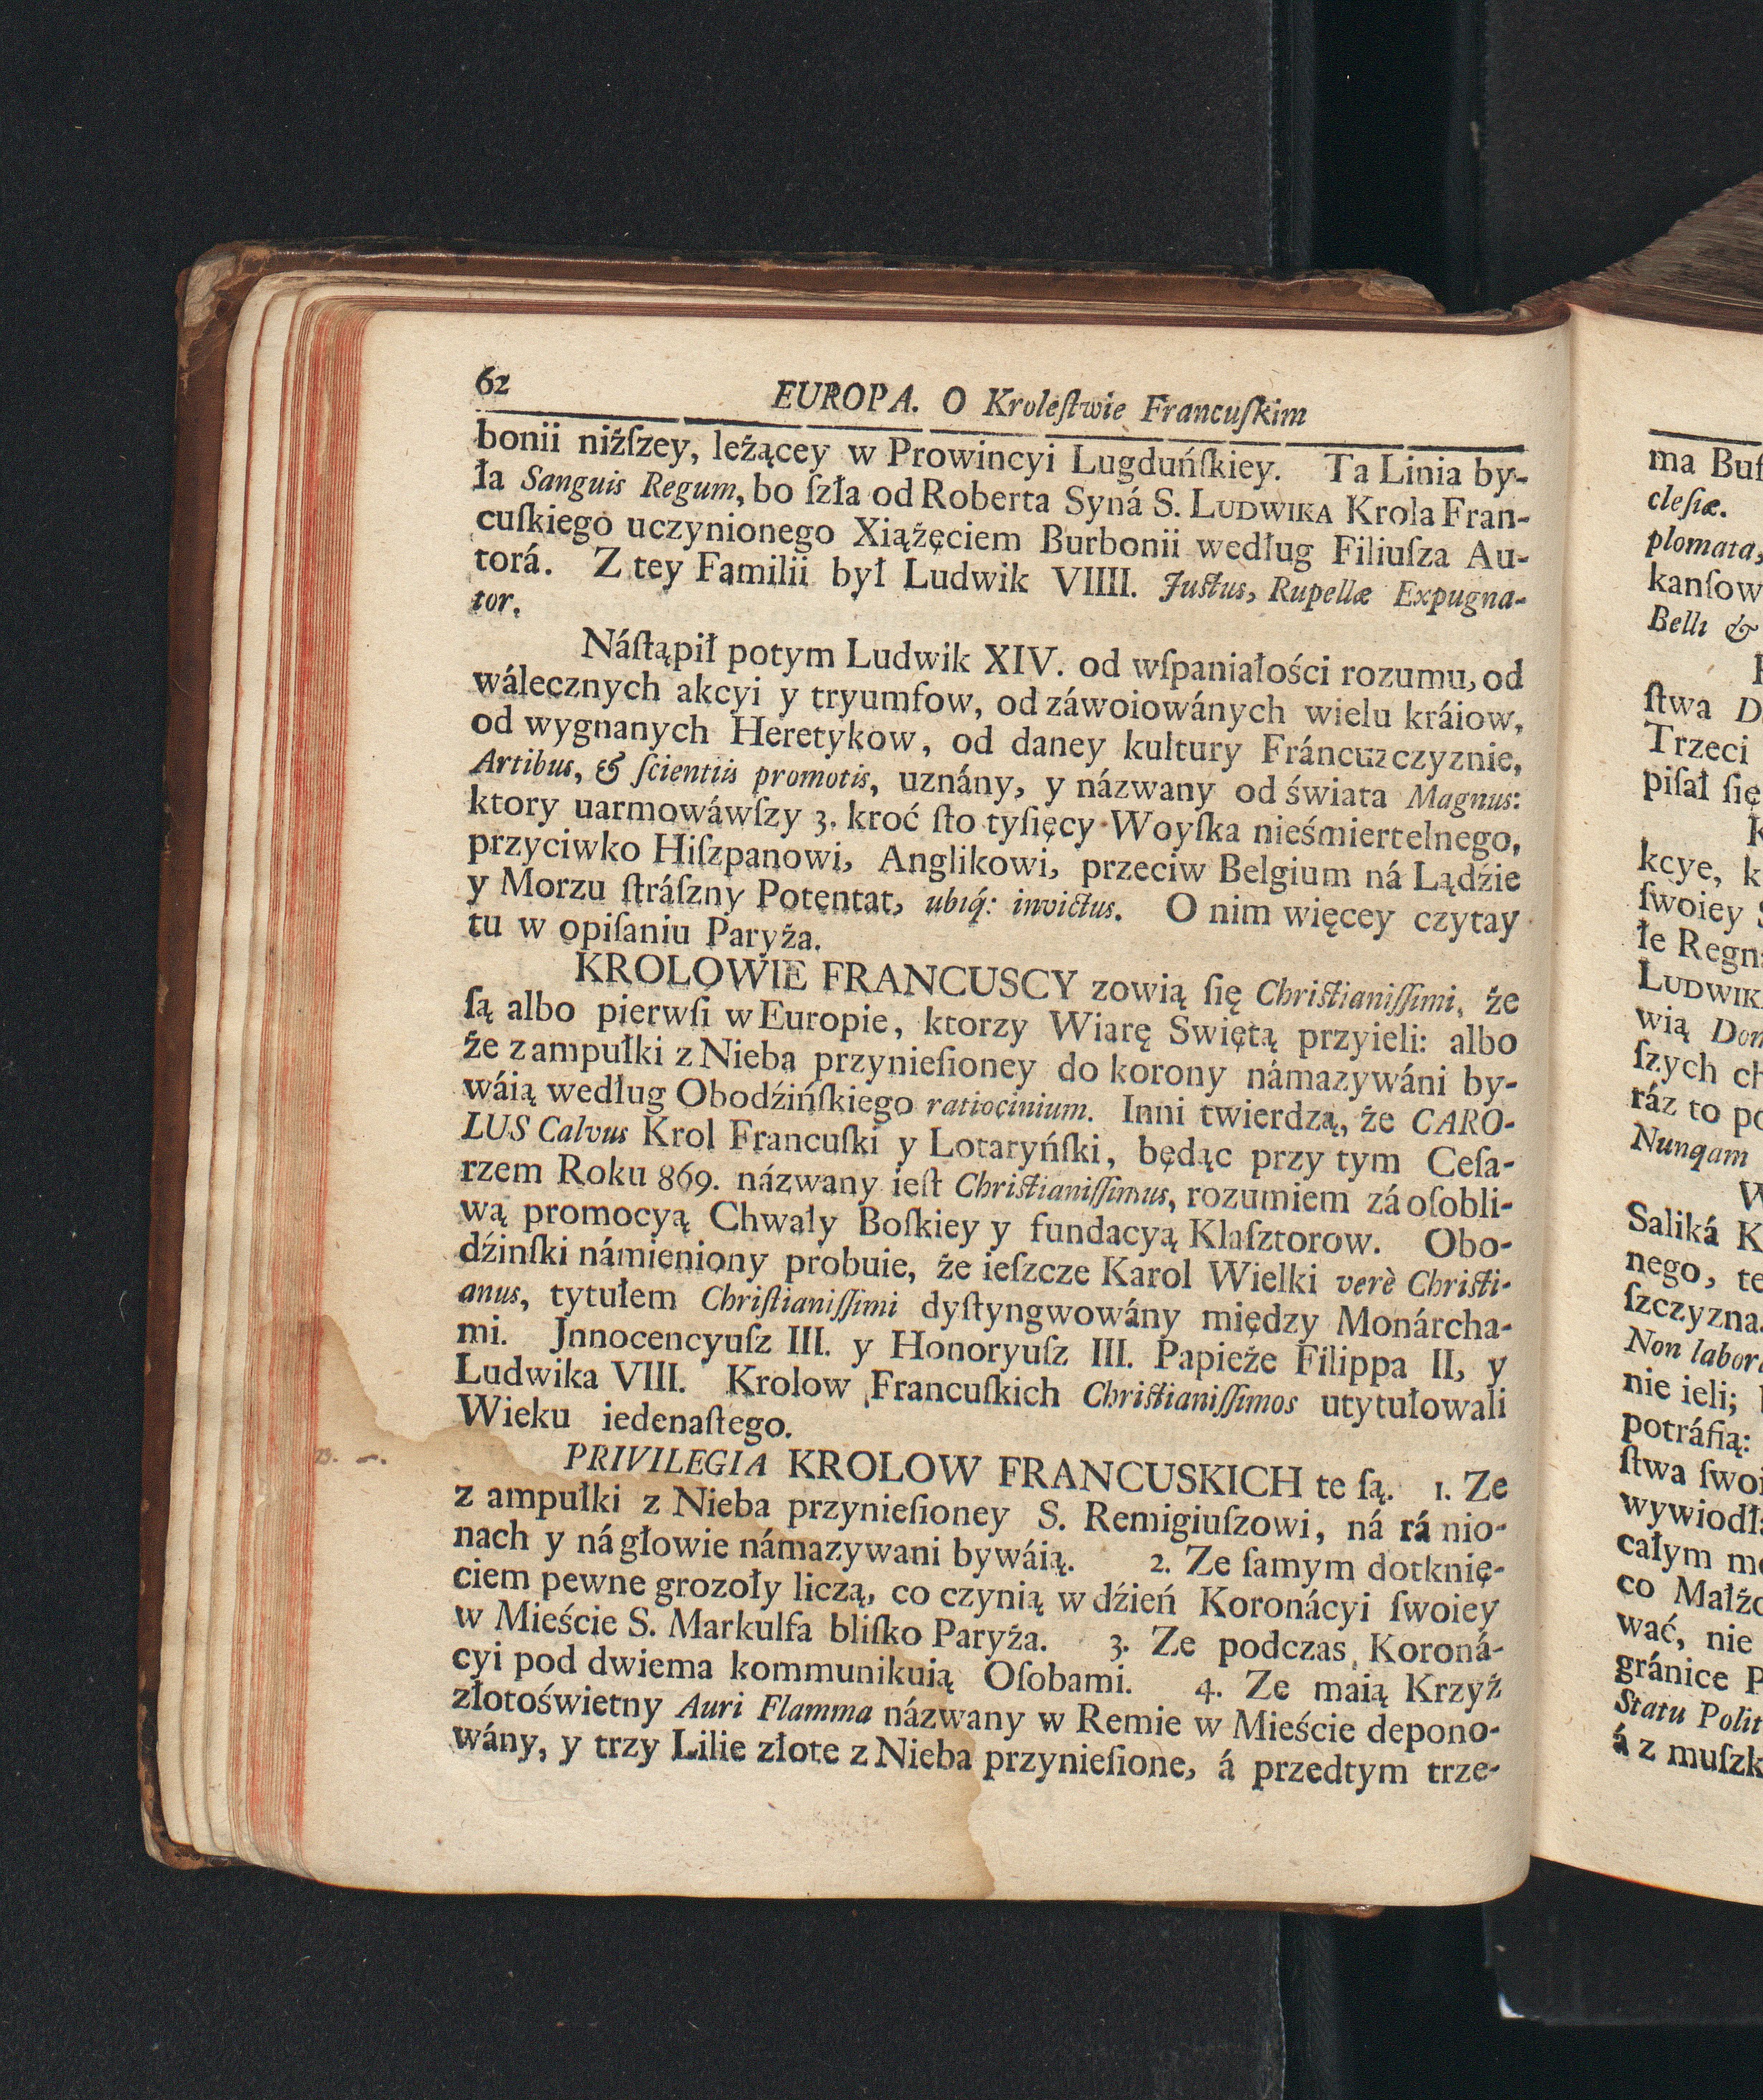 62 EUROPA. O Kroleſtwie Francuſkim
bonii niżſzey, leżącey w Prowincyi Lugduńſkiey. Ta Linia by-
ła Sanguis Regum, bo ſzła od Roberta Syná S. LUDWIKA Krola Fran-
cuſkiego uczynionego Xiążęciem Burbonii według Filiuſza Au-
torá. Z tey Familii był Ludwik VIIII. Juſtus, Rupellæ Expugna-
tor.
Náſtąpił potym Ludwik XIV. od wſpaniałości rozumu, od
wálecznych akcyi y tryumfow, od záwoiowánych wielu kráiow,
od wygnanych Heretykow, od daney kultury Fráncuzczyznie,
Artibus, & ſcientiis promotis, uznány, y názwany od świata Magnus:
ktory uarmowáwſzy 3. kroć ſto tyſięcy Woyſka nieśmiertelnego,
przyciwko Hiſzpanowi, Anglikowi, przeciw Belgium ná Lądźie
y Morzu ſtráſzny Potentat, ubiq́: invictus. O nim więcey czytay
tu w opiſaniu Paryża.
KROLOWIE FRANCUSCY zowią ſię Chriſtianiſſimi, że
ſą albo pierwſi w Europie, ktorzy Wiarę Swiętą przyieli: albo
że z ampułki z Nieba przynieſioney do korony námazywáni by-
wáią według Obodźińſkiego ratiocinium. Inni twierdzą, że CARO-
LUS Calvus Krol Francuſki y Lotaryńſki, będąc przy tym Ceſa-
rzem Roku 869. názwany ieſt Chriſtianiſſimus, rozumiem zá oſobli-
wą promocyą Chwały Boſkiey y fundacyą Klaſztorow. Obo-
dźinſki námieniony probuie, że ieſzcze Karol Wielki verè Chriſti-
anus, tytułem Chriſtianiſſimi dyſtyngwowány między Monárcha-
mi. Jnnocencyuſz III. y Honoryuſz III. Papieże Filippa II, y
Ludwika VIII. Krolow Francuſkich Chriſtianiſſimos utytułowali
Wieku iedenaſtego.
PRIVILEGIA KROLOW FRANCUSKICH te ſą. 1. Ze
z ampułki z Nieba przynieſioney S. Remigiuſzowi, ná rá nio-
nach y ná głowie námazywani bywáią. 2. Ze ſamym dotknię-
ciem pewne grozoły liczą, co czynią w dźień Koronácyi ſwoiey
w Mieście S. Markulfa bliſko Paryża. 3. Ze podczas Koroná-
cyi pod dwiema kommunikuią Oſobami. 4. Ze maią Krzyż
złotoświetny Auri Flamma názwany w Remie w Mieście depono-
wány, y trzy Lilie złote z Nieba przynieſione, á przedtym trze-
ma
cleſiæ.
plomata,
kanſow
Belli &
ſtwa
Trzeci
piſał ſię
kcye,
ſwoiey
łe
wią
ſzych
ráz to
Nunqam
Saliká
nego,
ſzczyzna
Non
nie ieli;
potráfią:
ſtwa
całym
co
wać, nie
gránice
Statu
á z